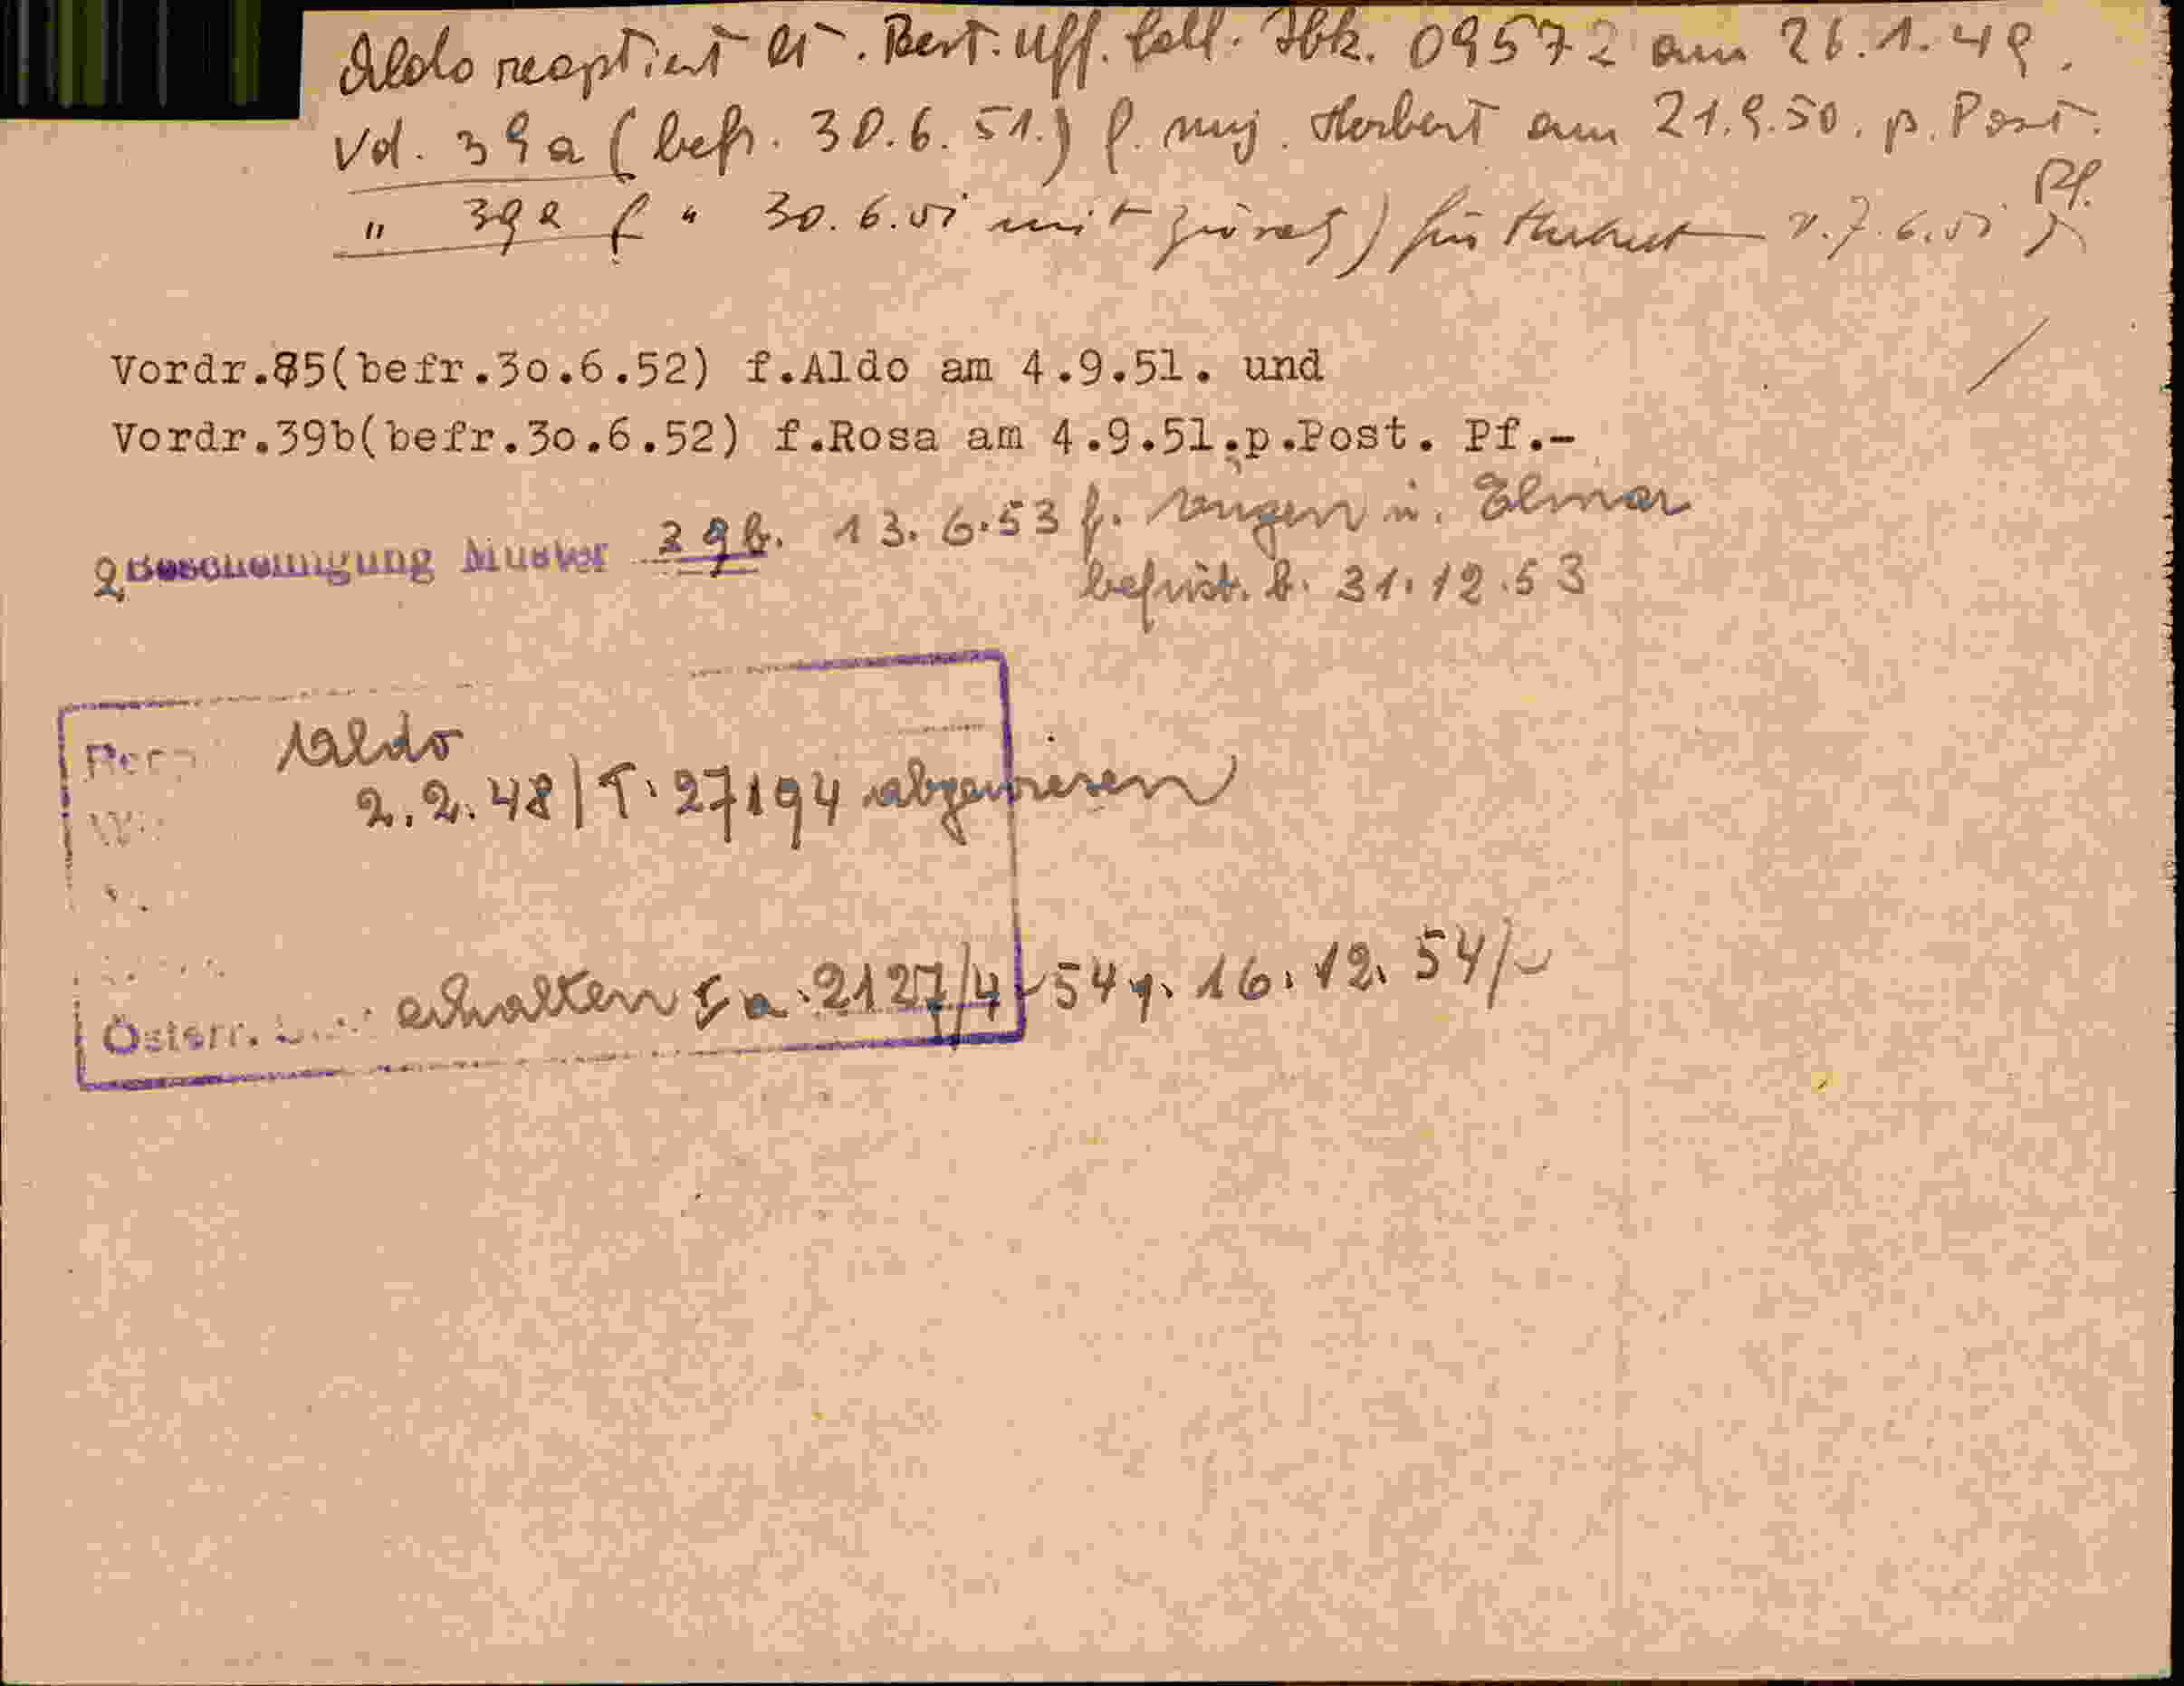 Aldo reoptiert lt. Best. Uff. Coll. Ibk. 09572 am 26.1.49.
Vd. 39a (befr. 30.6.51.) f. mj. Herbert am 21.9.50. p. Post.
Pf.
" 39a ( " 30.6.51 mit Zusatz) für Herbert v. 7.6.51
Vordr.85(befr.30.6.52) f.Aldo am 4.9.51. und
Vordr.39b(befr.30.6.52) f.Rosa am 4.9.51.p.Post. Pf.-
2 Bescheinigung Muster 39b. 13.6.53 f. Eugen u. Elmar
befrist. b. 31.12.53
Aldo
2.2.48/T. 27194 abgewiesen
Österr. erhalten I a. 2127/4-54 v. 16.12.54/